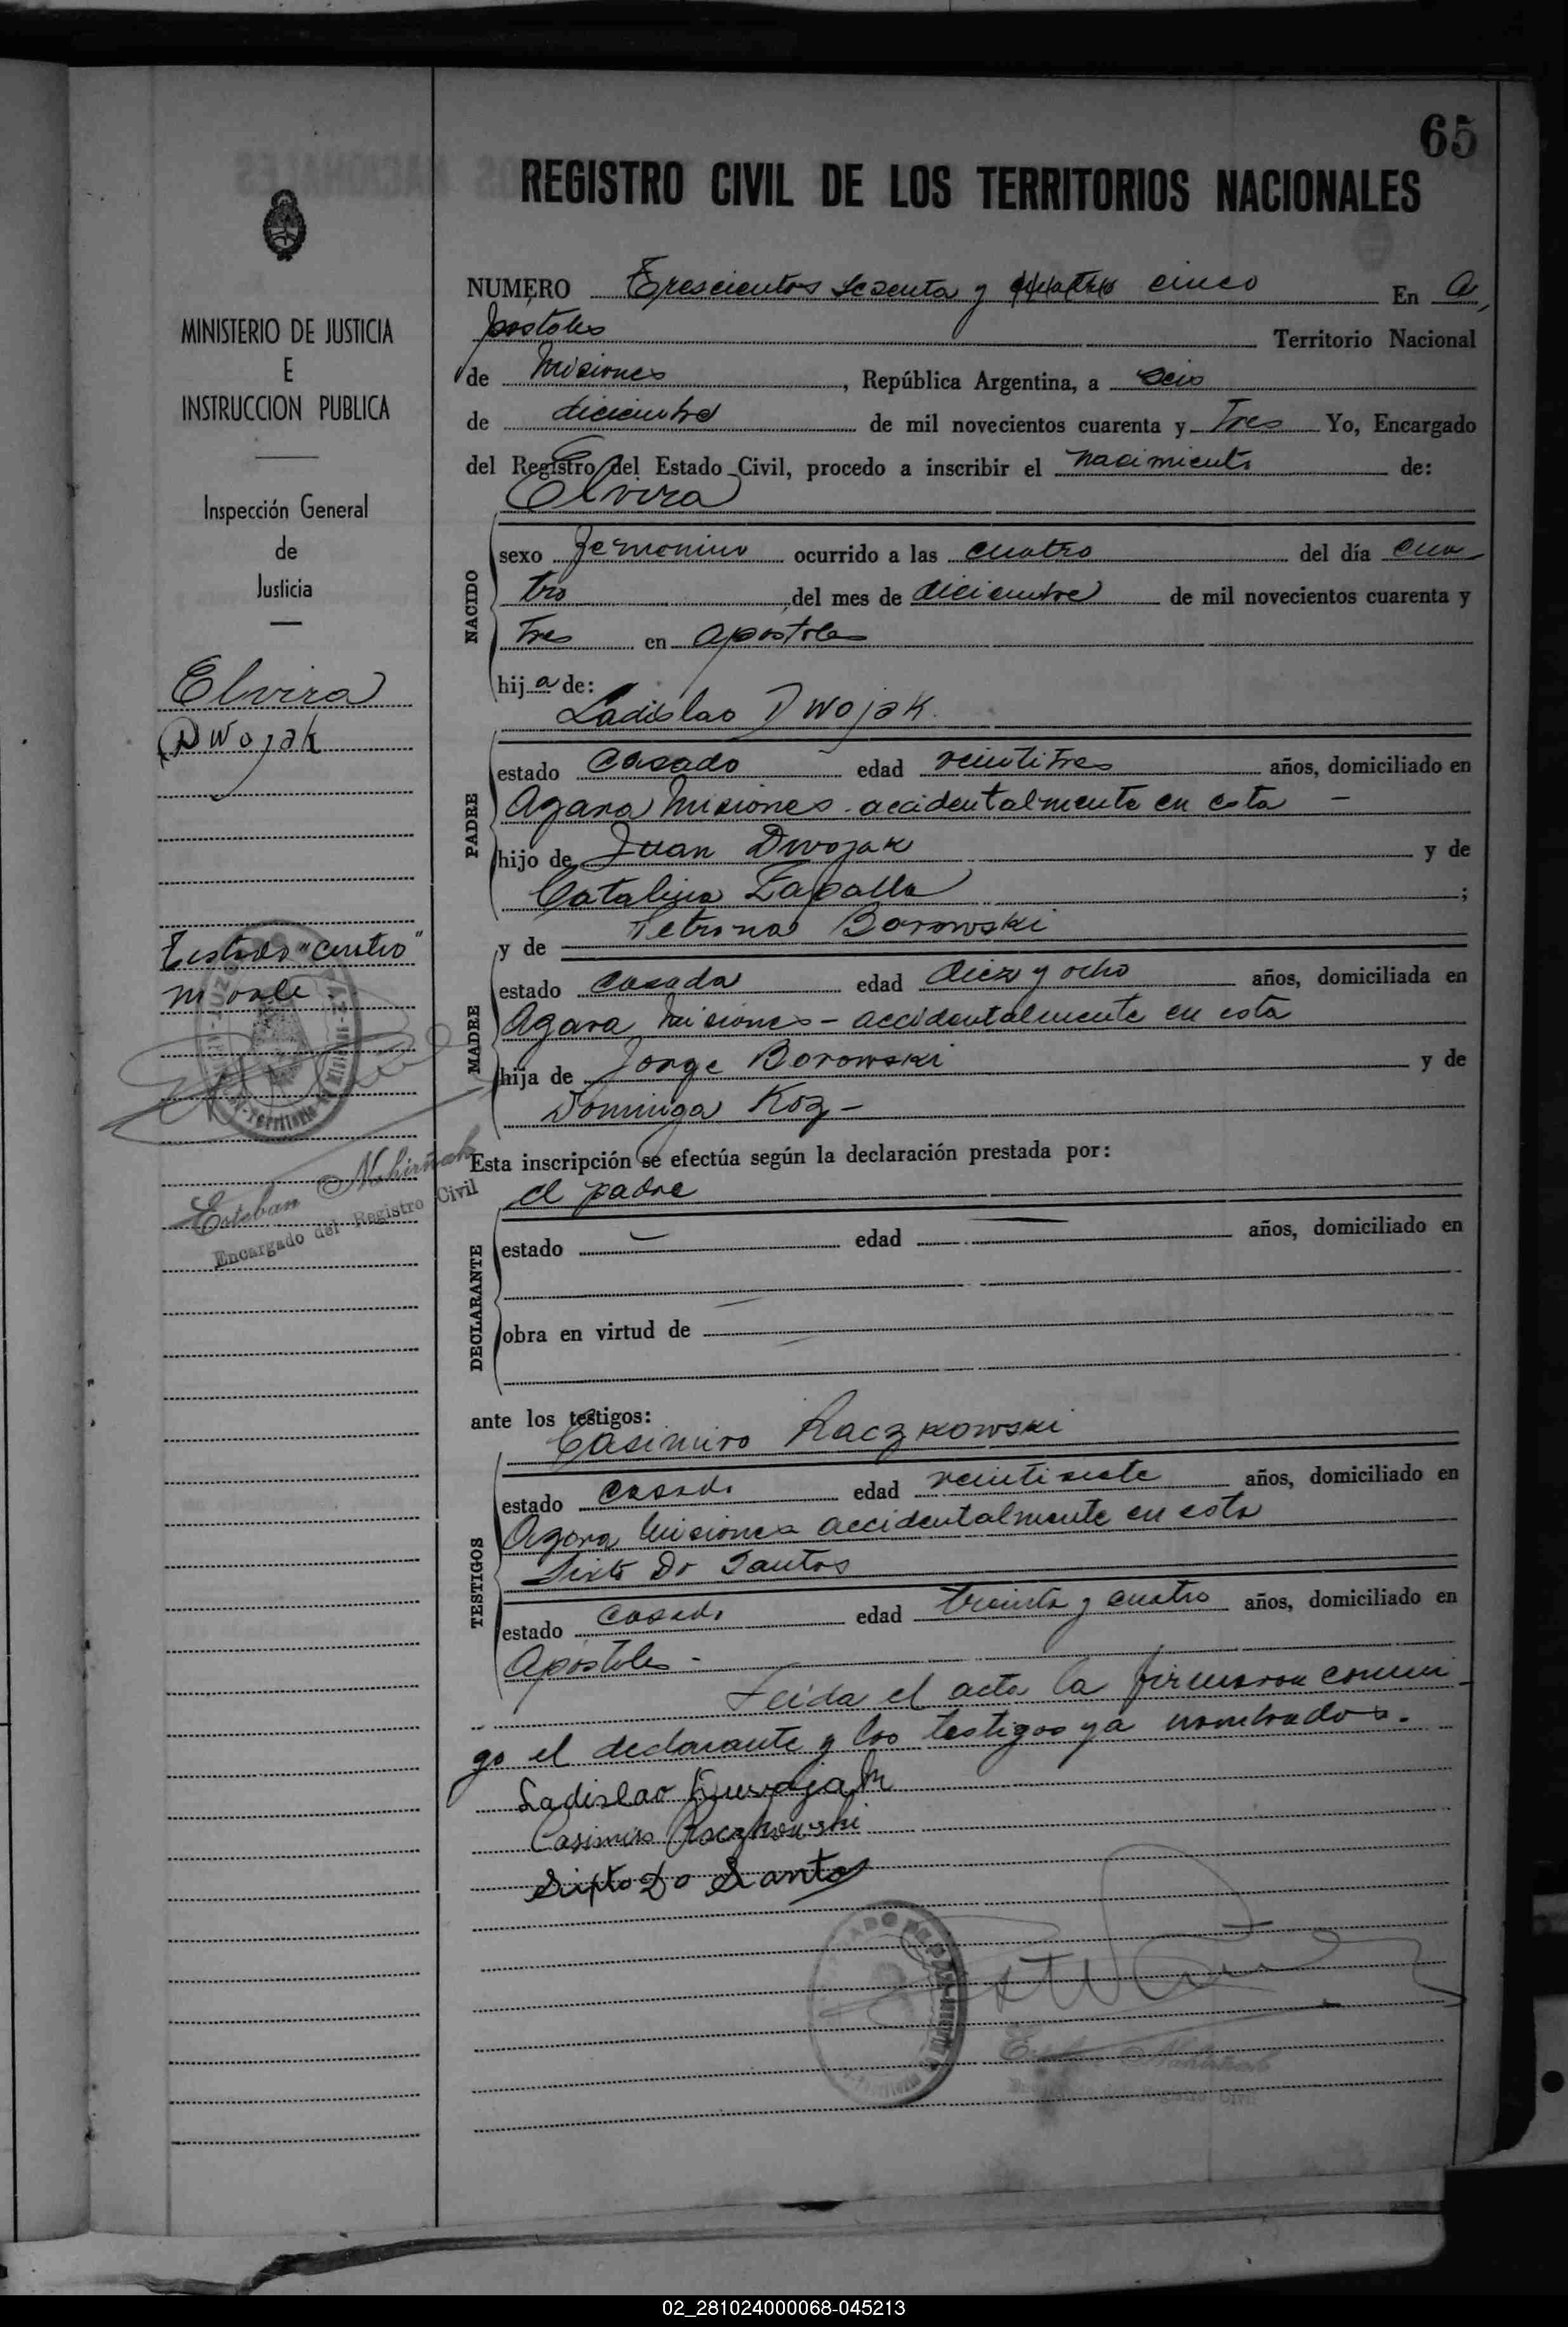 65
REGISTRO CIVIL DE LOS TERRITORIOS NACIONALES
MINISTERIO DE JUSTICIA
E
INSTRUCCION PUBLICA
Inspección General
de
Justicia
Elvira
Dwojak
Testado "cuatro"
no vale
Esteban Nahirñak
Encargado del Registro Civil
NUMERO Trescientos sesenta y cuatro cinco En A
postoles Territorio Nacional
de Misiones, República Argentina, a seis
de diciembre de mil novecientos cuarenta y Tres Yo, Encargado
del Registro del Estado Civil, procedo a inscribir el nacimiento de:
Elvira
NACIDO
sexo femenino ocurrido a las cuatro del día cua
tro del mes de diciembre de mil novecientos cuarenta y
Tres en Apostoles
hija de:
Ladislao Dwojak
PADRE
estado casado edad veintitres años, domiciliado en
Azara Misiones accidentalmente en esta —
hijo de Juan Dwojak y de
Catalina Zapalla ;
y de Petrona Borowski
MADRE
estado casada edad diez y ocho años, domiciliada en
Azara Misiones - accidentalmente en esta
hija de Jorge Borowski y de
Dominga Koz -
Esta inscripción se efectúa según la declaración prestada por:
el padre
DECLARANTE
estado — edad — años, domiciliado en
obra en virtud de
ante los testigos:
Casimiro Raczkowski
TESTIGOS
estado casado edad veintisiete años, domiciliado en
Azara Misiones accidentalmente en esta
Sixto Do Santos
estado casado edad treinta y cuatro años, domiciliado en
Apóstoles -
Leida el acta la firmaron conmi
go el declarante y los testigos ya nombrados.
Ladislao
Casimiro Raczkowski
Sixto Do Santos
02_281024000068-045213